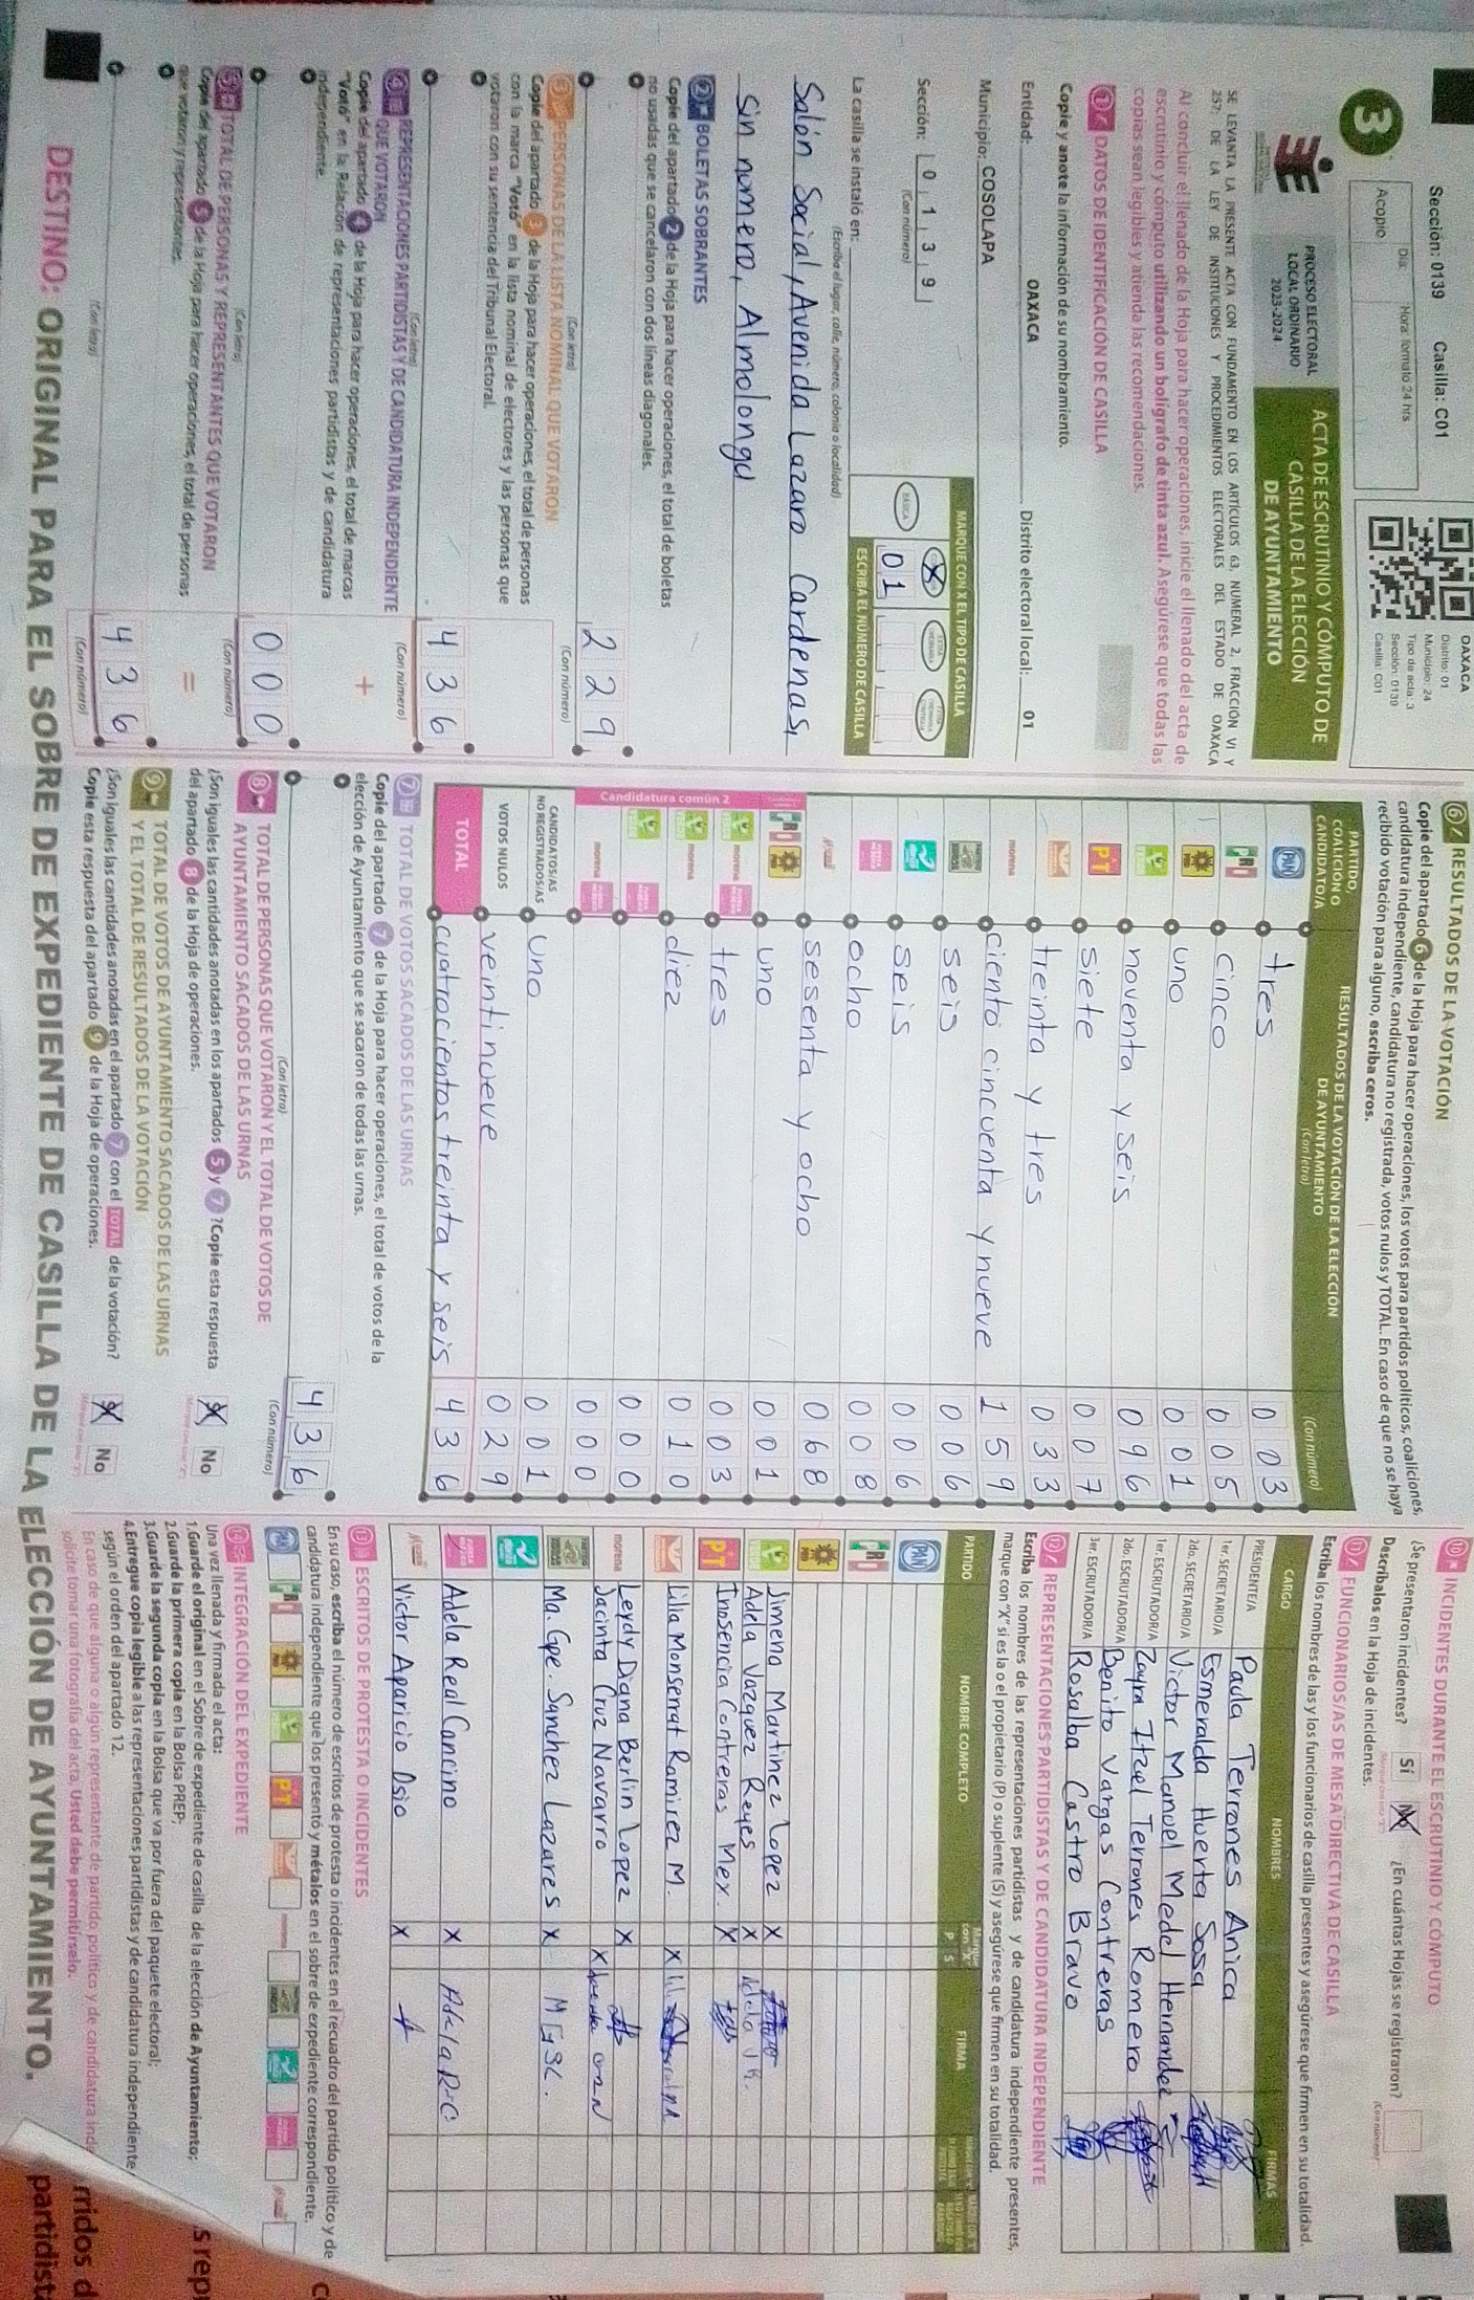 Sección: 0139 Casilla: C01
Día: Hora: formato 24 hrs
Acopio
OAXACA
Distrito: 01
Municipio: 24
Tipo de acta: 3
Sección: 0139
Casilla: C01
3
PROCESO ELECTORAL
LOCAL ORDINARIO
2023-2024
ACTA DE ESCRUTINIO Y CÓMPUTO DE
CASILLA DE LA ELECCIÓN
DE AYUNTAMIENTO
SE LEVANTA LA PRESENTE ACTA CON FUNDAMENTO EN LOS ARTÍCULOS 63, NUMERAL 2, FRACCIÓN VI Y
257; DE LA LEY DE INSTITUCIONES Y PROCEDIMIENTOS ELECTORALES DEL ESTADO DE OAXACA
Al concluir el llenado de la Hoja para hacer operaciones, inicie el llenado del acta de
escrutinio y cómputo utilizando un bolígrafo de tinta azul. Asegúrese que todas las
copias sean legibles y atienda las recomendaciones.
1 DATOS DE IDENTIFICACIÓN DE CASILLA
Copie y anote la información de su nombramiento.
Entidad: OAXACA Distrito electoral local: 01
Municipio: COSOLAPA
Sección: 0 1 3 9
(Con número)
MARQUE CON X EL TIPO DE CASILLA
BÁSICA X
01
ESCRIBA EL NÚMERO DE CASILLA
La casilla se instaló en:
(Escriba el lugar, calle, número, colonia o localidad)
Salón Social, Avenida Lazaro Cardenas,
sin numero, Almolonga
2 BOLETAS SOBRANTES
Copie del apartado 2 de la Hoja para hacer operaciones, el total de boletas
no usadas que se cancelaron con dos líneas diagonales.
2 2 9
(Con letra) (Con número)
3 PERSONAS DE LA LISTA NOMINAL QUE VOTARON
Copie del apartado 3 de la Hoja para hacer operaciones, el total de personas
con la marca "Votó" en la lista nominal de electores y las personas que
votaron con su sentencia del Tribunal Electoral.
4 3 6
(Con letra) (Con número)
4 REPRESENTACIONES PARTIDISTAS Y DE CANDIDATURA INDEPENDIENTE
QUE VOTARON
Copie del apartado 4 de la Hoja para hacer operaciones, el total de marcas
"Votó" en la Relación de representaciones partidistas y de candidatura
independiente.
+
0 0 0
(Con letra) (Con número)
5 TOTAL DE PERSONAS Y REPRESENTANTES QUE VOTARON
Copie del apartado 5 de la Hoja para hacer operaciones, el total de personas
que votaron y representantes.
=
4 3 6
(Con letra) (Con número)
6 RESULTADOS DE LA VOTACIÓN
Copie del apartado 6 de la Hoja para hacer operaciones, los votos para partidos políticos, coaliciones,
candidatura independiente, candidatura no registrada, votos nulos y TOTAL. En caso de que no se haya
recibido votación para alguno, escriba ceros.
PARTIDO,
COALICIÓN O
CANDIDATO/A
RESULTADOS DE LA VOTACIÓN DE LA ELECCIÓN
DE AYUNTAMIENTO
(Con letra) (Con número)
PAN tres 0 0 3
PRI cinco 0 0 5
PRD uno 0 0 1
VERDE noventa y seis 0 9 6
PT siete 0 0 7
treinta y tres 0 3 3
morena ciento cincuenta y nueve 1 5 9
seis 0 0 6
seis 0 0 6
ocho 0 0 8
sesenta y ocho 0 6 8
PRI PRD uno 0 0 1
Candidatura común 2
VERDE morena tres 0 0 3
VERDE morena diez 0 1 0
VERDE 0 0 0
morena 0 0 0
CANDIDATOS/AS
NO REGISTRADOS/AS uno 0 0 1
VOTOS NULOS veintinueve 0 2 9
TOTAL cuatrocientos treinta y seis 4 3 6
7 TOTAL DE VOTOS SACADOS DE LAS URNAS
Copie del apartado 7 de la Hoja para hacer operaciones, el total de votos de la
elección de Ayuntamiento que se sacaron de todas las urnas.
4 3 6
(Con letra) (Con número)
8 TOTAL DE PERSONAS QUE VOTARON Y EL TOTAL DE VOTOS DE
AYUNTAMIENTO SACADOS DE LAS URNAS
¿Son iguales las cantidades anotadas en los apartados 5 y 7 ? Copie esta respuesta
del apartado 8 de la Hoja de operaciones.
X No
9 TOTAL DE VOTOS DE AYUNTAMIENTO SACADOS DE LAS URNAS
Y EL TOTAL DE RESULTADOS DE LA VOTACIÓN
¿Son iguales las cantidades anotadas en el apartado 7 con el TOTAL de la votación?
Copie esta respuesta del apartado 9 de la Hoja de operaciones.
X No
10 INCIDENTES DURANTE EL ESCRUTINIO Y CÓMPUTO
¿Se presentaron incidentes? Sí No ¿En cuántas Hojas se registraron?
(Con número)
Descríbalos en la Hoja de incidentes.
11 FUNCIONARIOS/AS DE MESA DIRECTIVA DE CASILLA
Escriba los nombres de las y los funcionarios de casilla presentes y asegúrese que firmen en su totalidad.
CARGO NOMBRES FIRMAS
PRESIDENTE/A Paula Terrones Anica
1er. SECRETARIO/A Esmeralda Huerta Sosa
2do. SECRETARIO/A Victor Manuel Medel Hernandez
1er. ESCRUTADOR/A Zayra Itzel Terrones Romero
2do. ESCRUTADOR/A Benito Vargas Contreras
3er. ESCRUTADOR/A Rosalba Castro Bravo
12 REPRESENTACIONES PARTIDISTAS Y DE CANDIDATURA INDEPENDIENTE
Escriba los nombres de las representaciones partidistas y de candidatura independiente presentes,
marque con "X" si es la o el propietario (P) o suplente (S) y asegúrese que firmen en su totalidad.
PARTIDO NOMBRE COMPLETO Marque con X P S FIRMA
PAN
PRI
PRD
VERDE Jimena Martinez Lopez X
Adela Vazquez Reyes X
PT Inosencia Contreras Mex. X
Lilia Monserrat Ramirez M. X
morena Leydy Diana Berlin Lopez X
Jacinta Cruz Navarro X
Ma. Gpe. Sanchez Lazares X MGSL.
Adela Real Cancino X Adela R C
Victor Aparicio Osio X
13 ESCRITOS DE PROTESTA O INCIDENTES
En su caso, escriba el número de escritos de protesta o incidentes en el recuadro del partido político y de
candidatura independiente que los presentó y métalos en el sobre de expediente correspondiente.
PAN PRI PRD VERDE PT morena
INTEGRACIÓN DEL EXPEDIENTE
Una vez llenada y firmada el acta:
1. Guarde el original en el Sobre de expediente de casilla de la elección de Ayuntamiento;
2. Guarde la primera copia en la Bolsa PREP;
3. Guarde la segunda copia en la Bolsa que va por fuera del paquete electoral;
4. Entregue copia legible a las representaciones partidistas y de candidatura independiente
según el orden del apartado 12.
En caso de que alguna o algún representante de partido político y de candidatura inde
solicite tomar una fotografía del acta, Usted debe permitírselo.
DESTINO: ORIGINAL PARA EL SOBRE DE EXPEDIENTE DE CASILLA DE LA ELECCIÓN DE AYUNTAMIENTO.
s rep
rridos d
partidist